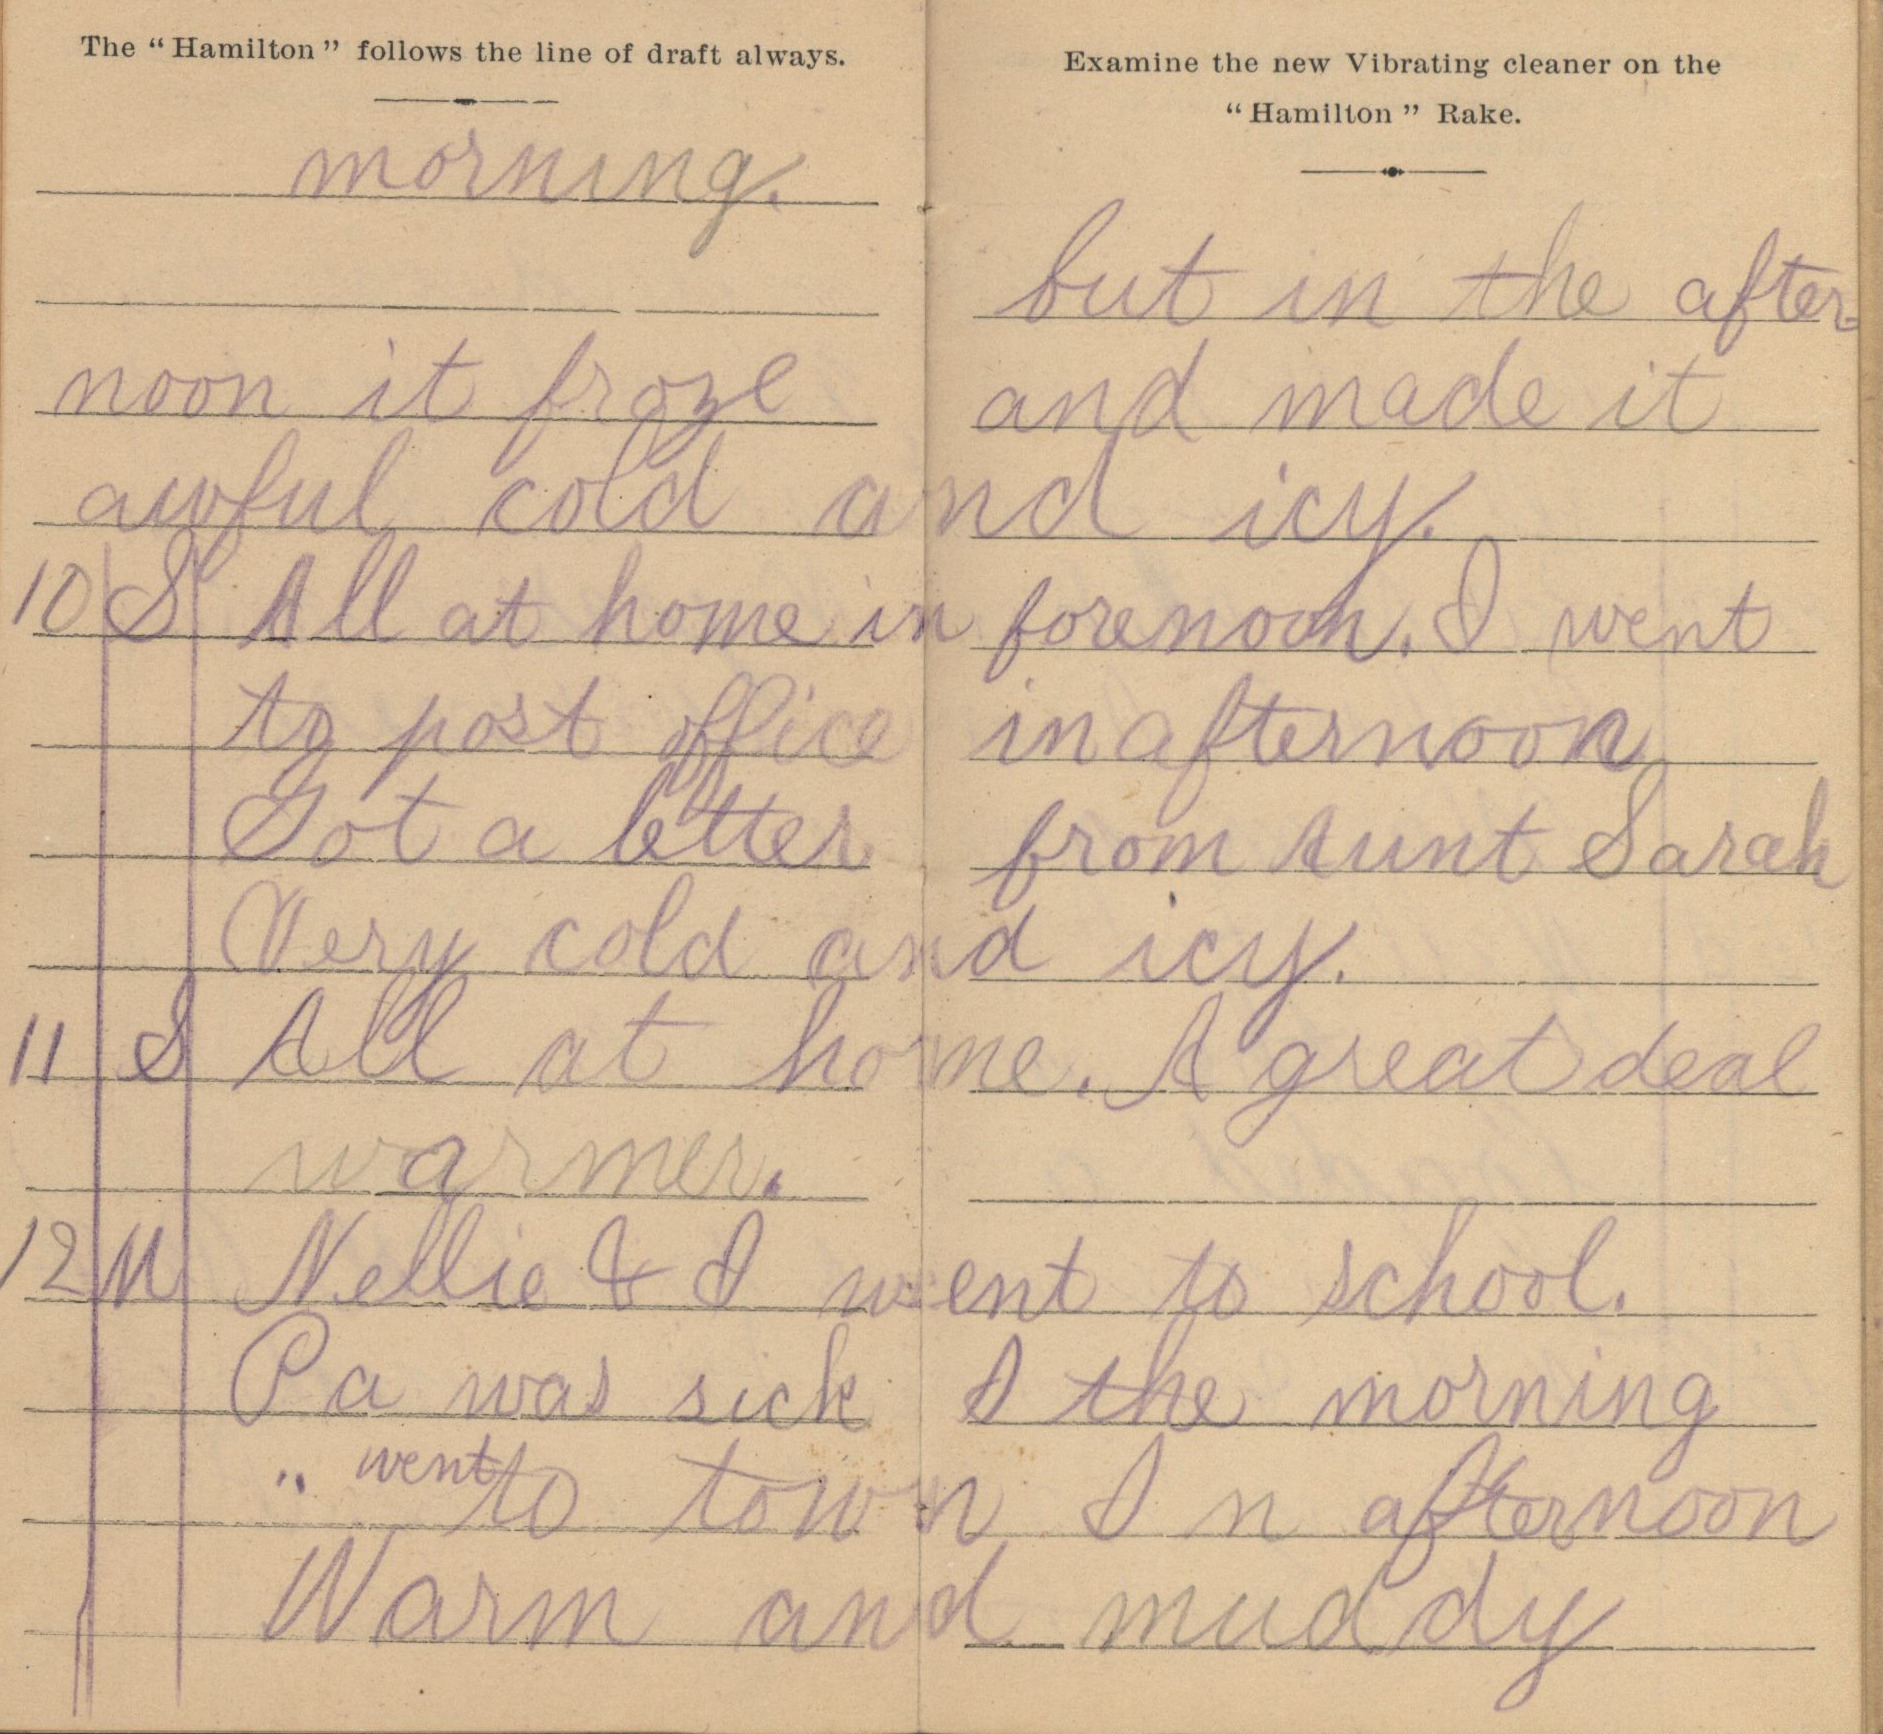 The "Hamilton" follows the line of draft always.
Examine the new Vibrating cleaner on the
"Hamilton" Rake.
morning.
but in the after-
noon it froze and made it
awful cold and icy.
10 S All at home in forenoon. I went
to post office in afternoon
Got a letter from Aunt Sarah
Very cold and icy.
11 S All at home. A great deal
warmer.
12 M Nellie & I went to school.
Pa was sick I the morning
" went to town I n afternoon
Warm and muddy